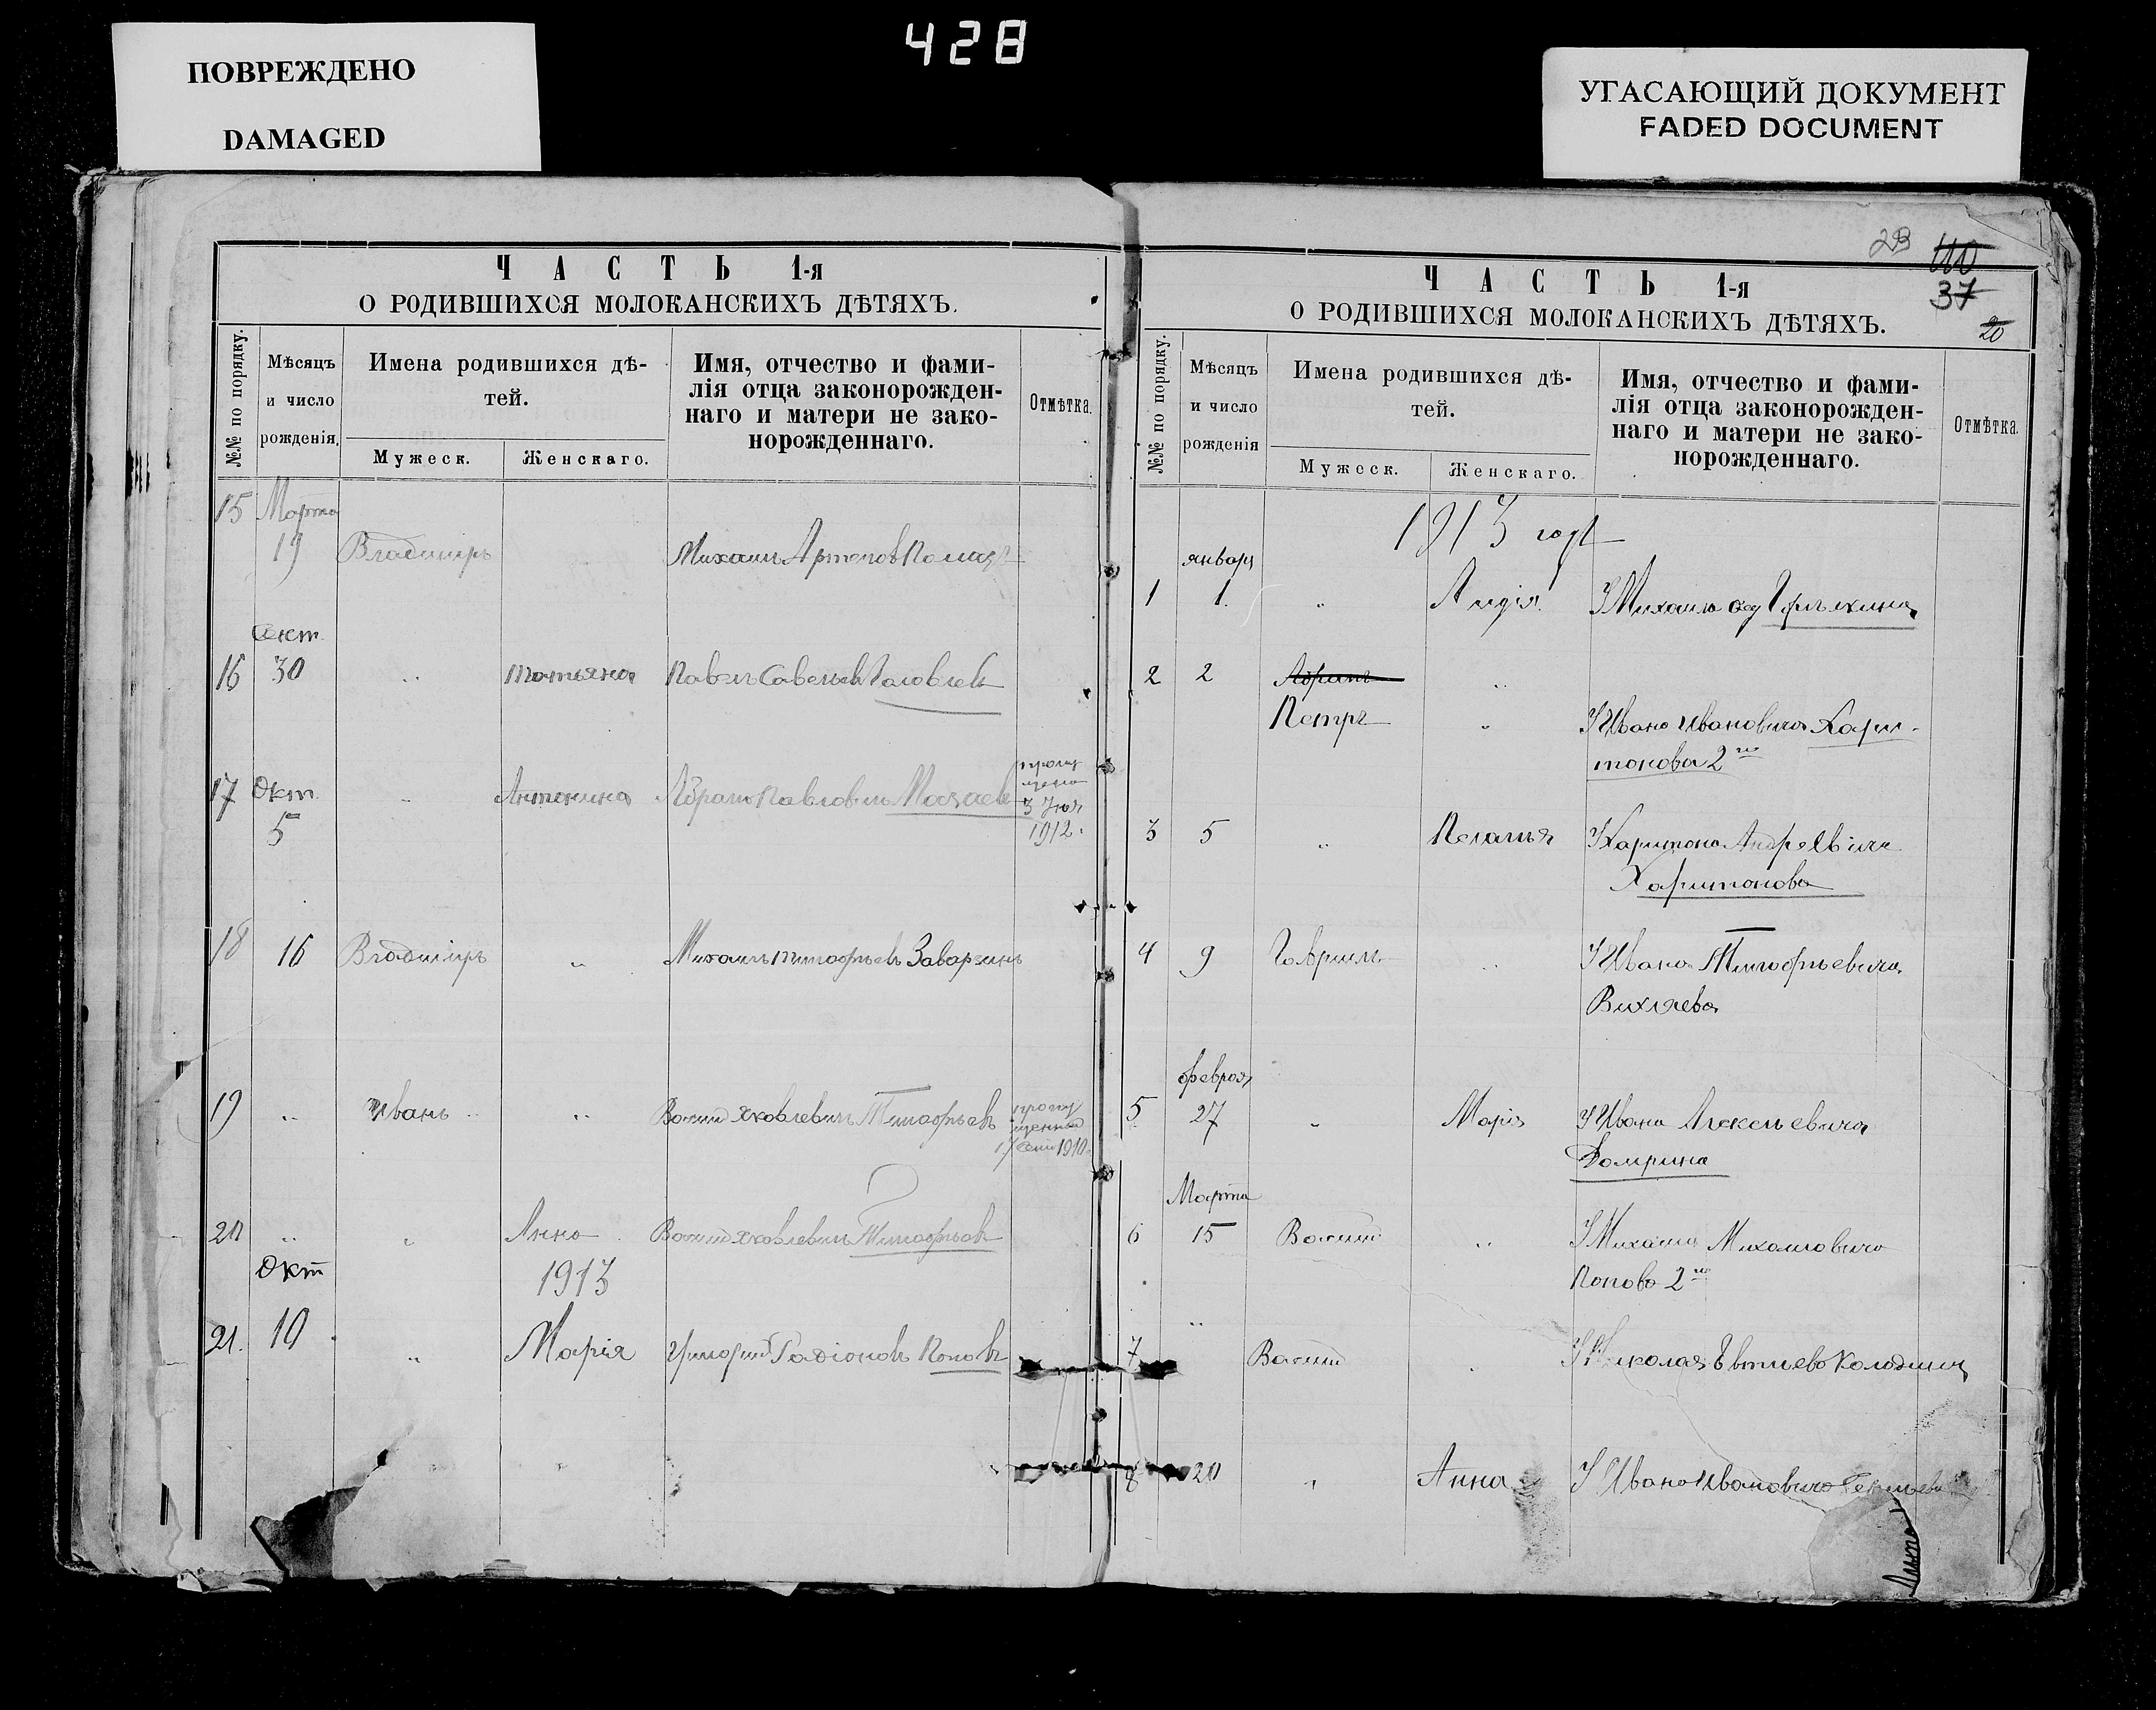 428
ПОВРЕЖДЕНО
DAMAGED
УГАСАЮЩИЙ ДОКУМЕНТ
FADED DOCUMENT
ЧАСТЬ 1-я
О РОДИВШИХСЯ МОЛОКАНСКИХЪ ДѢТЯХЪ.
№№ по порядку.
Мѣсяцъ
и число
рожденія.
Имена родившихся дѣ-
тей.
Мужеск.
Женскаго.
Имя, отчество и фами-
лія отца законорожден-
наго и матери не зако-
норожденнаго.
Отмѣтка.
15 Марта
19 Владиміръ Михаилъ
Сент.
16 30 " Татьяна Павелъ Савельевъ
17 Окт. " Антонина Абрамъ Павловичъ Мазаевъ
5
3
1912.
18 16 Владиміръ " Михаилъ Тимофѣевъ Заварзинъ
19 " Иванъ " Василій Яковлевичъ Тимофѣевъ
17 Сент 1910
20 " " Анна Василій Яковлевичъ Тимофѣевъ
Окт 1913
21. 10 " Марія Григорій Родіоновъ Поповъ
23
110
37
20
ЧАСТЬ 1-я
О РОДИВШИХСЯ МОЛОКАНСКИХЪ ДѢТЯХЪ.
№№ по порядку.
Мѣсяцъ
и число
рожденія
Имена родившихся дѣ-
тей.
Мужеск.
Женскаго.
Имя, отчество и фами-
лія отца законорожден-
наго и матери не зако-
норожденнаго.
Отмѣтка.
1913 годъ
январ
1 1. " Лидія У Михаила
2 2 Абрамъ "
Петръ " У Ивана Ивановича Хари-
тонова 2го
3 5 " Пелагія У Харитона Андреевича
Харитонова
4 9 Гавриилъ " У Ивана Тимофѣевича
Вихляева
феврал
5 27 " Марія У Ивана Алексѣевича
Домрина
Марта
6 15 Василій " У Михаила Михайловича
Попова 2го
7 " Василій У Николая
8 20 " Анна У Ивана Ивановича